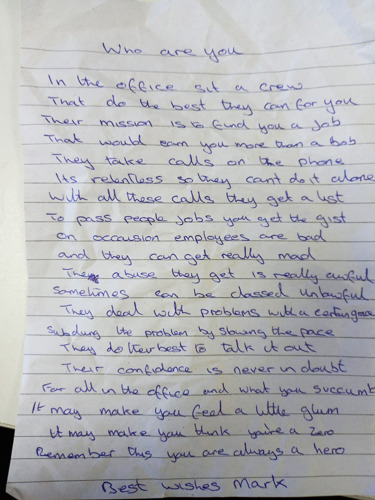 Who are you
In the office sit a crew
That do the best they can for you
Their mission is to find you a job
That would earn you more than a bob
They take calls on the phone
Its relentless so they cant do it alone
With all these calls they get a list
To pass people jobs you get the gist
on occassion employees are bad
and they can get really mad
The abuse they get is really awful
sometimes can be classed unlawful
They deal with problems with a certain grace
Subduing the problem by slowing the pace
They do their best to talk it out
Their confidence is never in doubt
For all in the office and what you succumb
It may make you feel a little glum
It may make you think you're a zero
Remember this you are always a hero
Best wishes Mark